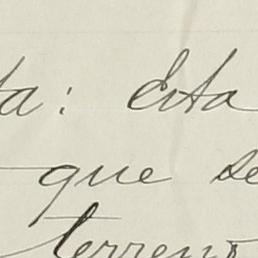 ta: Esta
que se
terreno